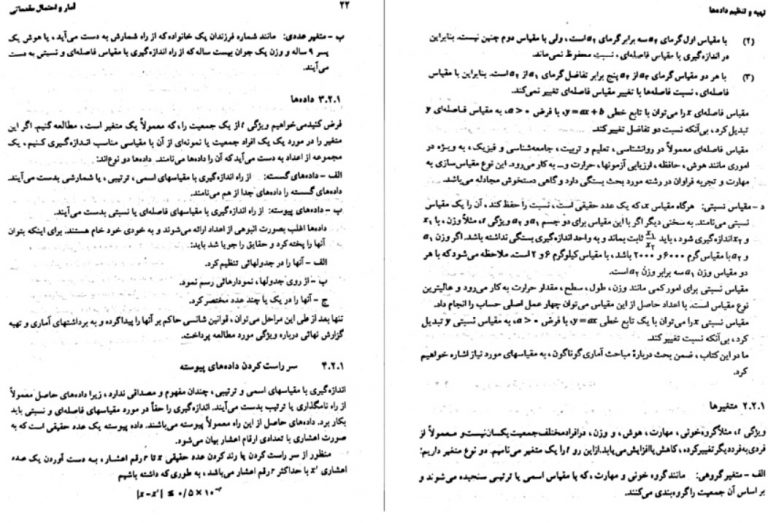 تهیه و تنظیم داده‌ها
(۲) با مقیاس اول گرمای a۲ سه برابر گرمای a۱ است، ولی با مقیاس دوم چنین نیست. بنابراین
در اندازه‌گیری با مقیاس فاصله‌ای، نسبت محفوظ نمی‌ماند.
(۳) با هر دو مقیاس گرمای a۳ از a۲ پنج برابر تفاضل گرمای a۱ از a۲ است. بنابراین با مقیاس
فاصله‌ای، نسبت فاصله‌ها با تغییر مقیاس فاصله‌ای تغییر نمی‌کند.
مقیاس فاصله‌ای x را می‌توان با تابع خطی y=ax+b، با فرض a>۰، به مقیاس فاصله‌ای y
تبدیل کرد، بی‌آنکه نسبت دو تفاضل تغییر کند.
مقیاس فاصله‌ای معمولاً در روانشناسی، تعلیم و تربیت، جامعه‌شناسی و فیزیک، به ویژه در
اموری مانند هوش، حافظه، ارزیابی آزمونها، حرارت و... به کار می‌رود. این نوع مقیاس‌سازی به
مهارت و تجربه فراوان در رشته مورد بحث بستگی دارد و گاهی دستخوش مجادله می‌باشد.
د - مقیاس نسبتی: هرگاه مقیاس x، که یک عدد حقیقی است، نسبت را حفظ کند، آن را یک مقیاس
نسبتی می‌نامند. به سخنی دیگر اگر با این مقیاس برای دو جسم a۱ و a۲ ویژگی t، مثلاً وزن، با x۱
و x۲ اندازه‌گیری شود، باید x۱/x۲ ثابت بماند و به واحد اندازه‌گیری بستگی نداشته باشد. اگر وزن a۱
و a۲ با مقیاس گرم ۶۰۰۰ و ۲۰۰۰ باشد، با مقیاس کیلوگرم ۶ و ۲ است. ملاحظه می‌شود که با هر
دو مقیاس وزن a۱ سه برابر وزن a۲ است.
مقیاس نسبتی برای امور کمی مانند وزن، طول، سطح، مقدار حرارت به کار می‌رود و عالیترین
نوع مقیاس است. با اعداد حاصل از این مقیاس می‌توان چهار عمل اصلی حساب را انجام داد.
مقیاس نسبتی x را می‌توان با یک تابع خطی y=ax، با فرض a>۰، به مقیاس نسبتی y تبدیل
کرد، بی‌آنکه نسبت تغییر کند.
ما در این کتاب، ضمن بحث دربارهٔ مباحث آماری گوناگون، به مقیاسهای مورد نیاز اشاره خواهیم
کرد.
۲.۲.۱ متغیرها
ویژگی t، مثلاً گروه خونی، مهارت، هوش، و وزن، در افراد مختلف جمعیت یکسان نیست و معمولاً از
فردی به فرد دیگر تغییر کرده، کاهش یا افزایش می‌یابد. از این رو t را یک متغیر می‌نامیم. دو نوع متغیر داریم:
الف - متغیر گروهی: مانند گروه خونی و مهارت، که با مقیاس اسمی یا ترتیبی سنجیده می‌شوند و
بر اساس آن جمعیت را گروه‌بندی می‌کنند.
۲۲
آمار و احتمال مقدماتی
ب - متغیر عددی: مانند شماره فرزندان یک خانواده که از راه شمارش به دست می‌آید، یا هوش یک
پسر ۹ ساله و وزن یک جوان بیست ساله که از راه اندازه‌گیری با مقیاس فاصله‌ای و نسبتی به دست
می‌آیند.
۳.۲.۱ داده‌ها
فرض کنید می‌خواهیم ویژگی t از یک جمعیت را، که معمولاً یک متغیر است، مطالعه کنیم. اگر این
متغیر را در مورد یک یک افراد جمعیت یا نمونه‌ای از آن با مقیاسی مناسب اندازه‌گیری کنیم، یک
مجموعه از اعداد به دست می‌آید که آن را داده‌ها می‌نامند. داده‌ها دو نوع‌اند:
الف - داده‌های گسسته: از راه اندازه‌گیری با مقیاسهای اسمی، ترتیبی، یا شمارشی بدست می‌آیند.
داده‌های گسسته را داده‌های جدا از هم می‌نامند.
ب - داده‌های پیوسته: از راه اندازه‌گیری با مقیاسهای فاصله‌ای یا نسبتی بدست می‌آیند.
داده‌ها اغلب بصورت انبوهی از اعداد ارائه می‌شوند و به خودی خود خام هستند. برای اینکه بتوان
آنها را پخته کرد و حقایق را جویا شد باید:
الف - آنها را در جدولهائی تنظیم کرد.
ب - از روی جدولها، نمودارهائی رسم نمود.
ج - آنها را در یک یا چند عدد مختصر کرد.
تنها بعد از طی این مراحل می‌توان، قوانین شانسی حاکم بر آنها را پیدا کرده و به برداشتهای آماری و تهیه
گزارش نهائی درباره ویژگی مورد مطالعه پرداخت.
۴.۲.۱ سر راست کردن داده‌های پیوسته
اندازه‌گیری با مقیاسهای اسمی و ترتیبی، چندان مفهوم و مصداقی ندارد، زیرا داده‌های حاصل معمولاً
از راه نامگذاری یا ترتیب بدست می‌آیند. اندازه‌گیری را حقاً در مورد مقیاسهای فاصله‌ای و نسبتی باید
بکار برد. داده‌های حاصل از این راه معمولاً پیوسته می‌باشند. داده پیوسته یک عدد حقیقی است که به
صورت اعشاری با تعدادی ارقام اعشار بیان می‌شود.
منظور از سر راست کردن یا رند کردن عدد حقیقی x تا r رقم اعشار، به دست آوردن یک عدد
اعشاری x' با حداکثر r رقم اعشار می‌باشد، به طوری که داشته باشیم
|x-x'| ≤ ۰/۵×۱۰⁻ʳ